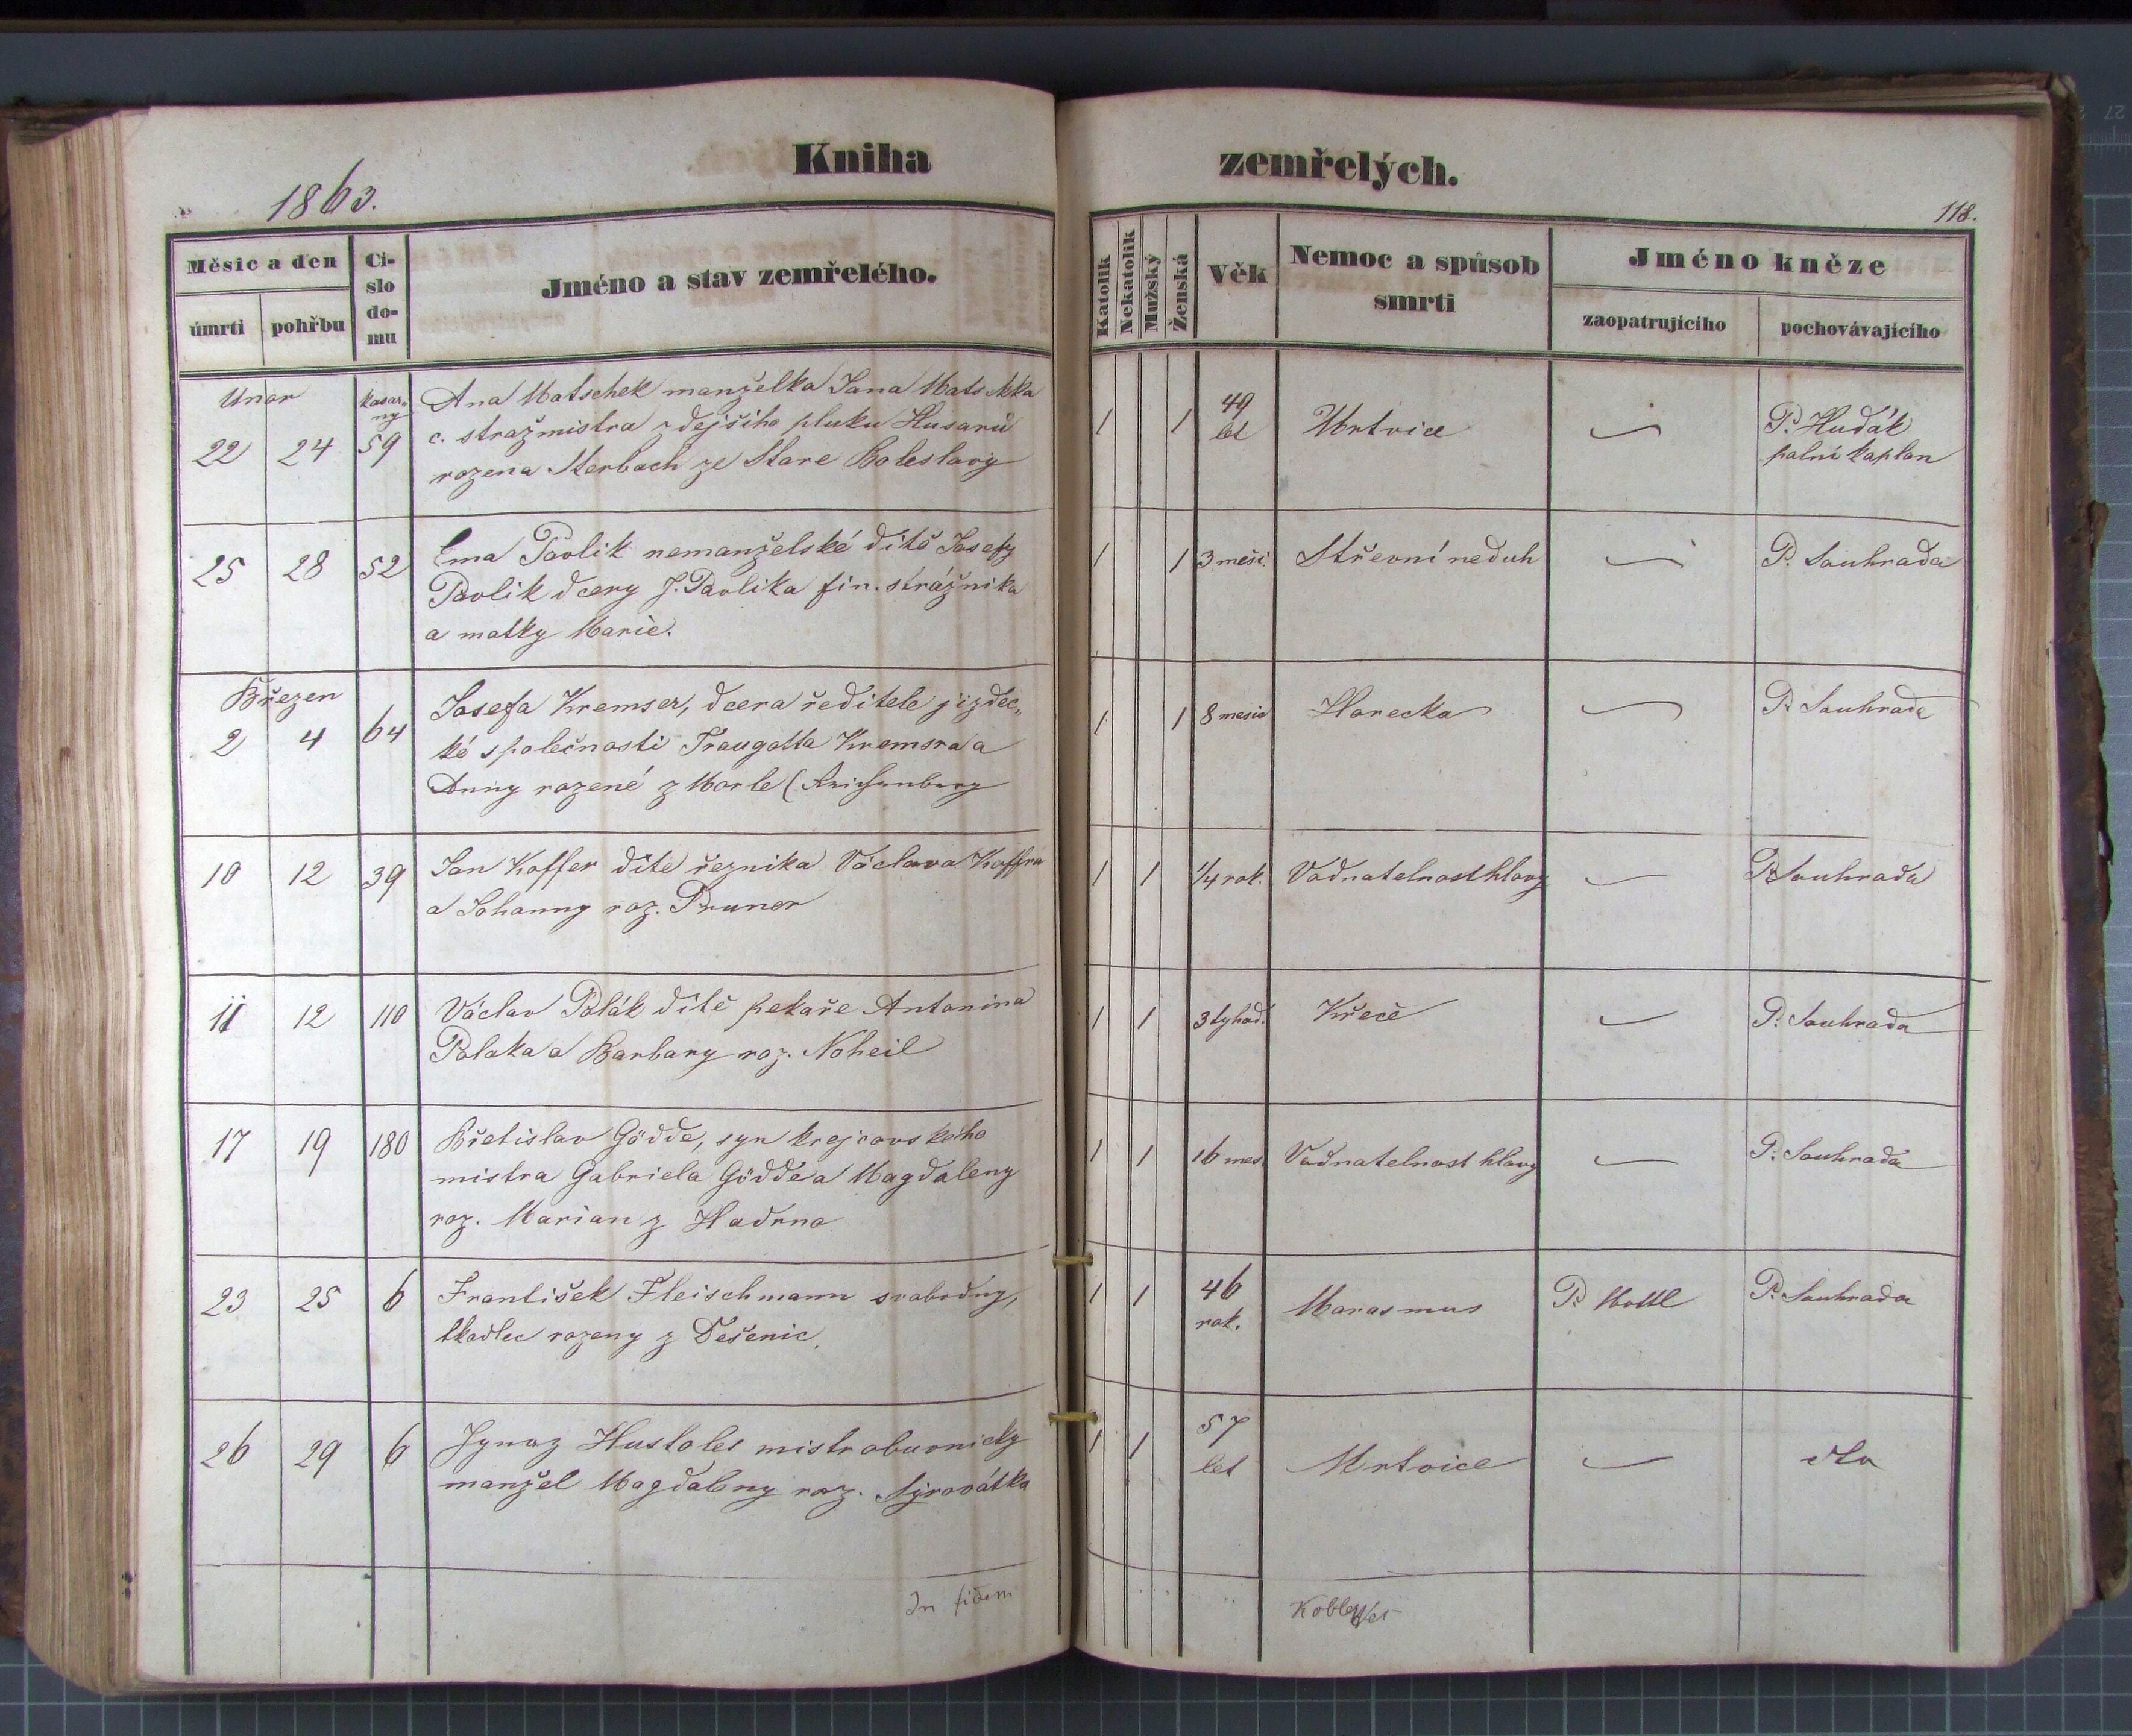 Kniha zemřelých.
1863.
118.
Měsíc a den
úmrtí
pohřbu
Čí-
slo
do-
mu
Jméno a stav zemřelého.
Katolík
Nekatolík
Mužský
Ženská
Věk
Nemoc a spůsob
smrti
Jméno kněze
zaopatrujícího
pochovávajícího
Unor
22 24 kasar„
ny
59
Ana Matschek manželka Jana Matschka
c. stražmistra zdejšiho pluku Husarů
rozena Sterbach ze Stare Boleslavy
1 1 49
let
Mrtvice
P. Hudák
polní kaplan
25 28 52
Ema Pavlik nemanželské dítě Josefy
Pavlik dcery J. Pavlika fin. strážnika
a matky Marie.
1 1 3 měsí. Střevní neduh P. Souhrada
Březen
2 4 64
Josefa Kremser, dcera ředitele jizdec„
ké společnosti Traugotta Kremsra a
Anny rozené z Morle (Reichenberg
1 1 8 mesic Horecka P. Souhrada
10 12 39
Jan Koffer díte řeznika Václava Koffra
a Johanny roz. Pruner
1 1 1/4 rok. Vodnatelnost hlavy P. Souhrada
11 12 110
Václav Polák dítě pekaře Antonina
Polaka a Barbary roz. Noheil
1 1 3 tyhod. Křeče P. Souhrada
17 19 180
Břetislav Gödde, syn krejcovského
mistra Gabriela Gödde a Magdaleny
roz. Marian z Hadrna
1 1 16 mes. Vodnatelnost hlavy P. Souhrada
23 25 6
František Fleischmann svobodny,
tkadlec rozeny z Dešenic.
1 1 46
rok.
Marasmus P. Mottl P. Souhrada
26 29 6
Ignaz Hustoles mistr obuvnicky
manžel Magdaleny roz. Syrovátka
1 1 57
let
Mrtvice
In fidem